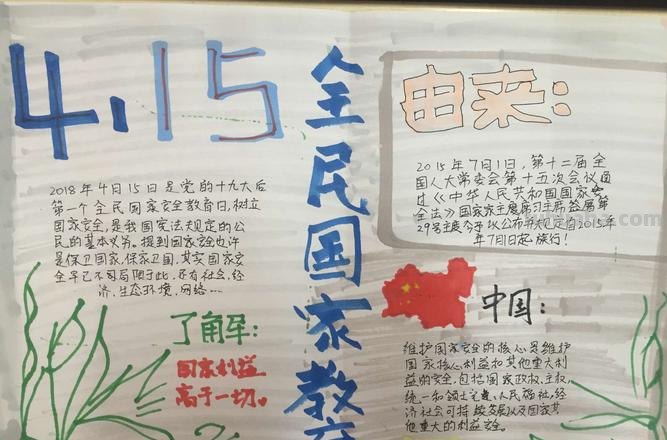 4.15
全民国家教育
2018年4月15日是党的十九大后
第一个全民国家安全教育日,树立
国家安全,是我国宪法规定的公
民的基本义务。提到国家安全也许
是保卫国家,保家卫国,其实国家安
全早已不局限于此,还有社会,经
济,生态环境,网络……
了解:
国家利益
高于一切。
由来:
2015年7月1日,第十二届全
国人大常委会第十五次会议通
过《中华人民共和国国家安
全法》国家主席习主席签第
29号主席令予以公布并规定自2015年
年7月1日起施行!
中国:
维护国家安全的核心是维护
国家核心利益和其他重大利
益的安全,包括国家政权、主权、
统一和领土完整、人民福祉,经
济社会可持续发展以及国家其
他重大的利益安全。